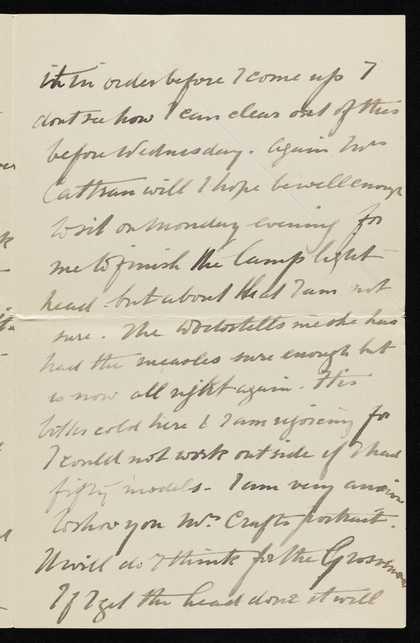 it in order before I come up I
dont see how I can clear out of this
before Wednesday. Again Mrs
will I hope be well enough
to sit on Monday evening for
me to finish the lamp light
head but about that I am not
sure. The doctor tells me she has
had the measles sure enough but
is now all right again. It is
cold here & I am rejoicing for
I could not work outside if I had
fifty models. I am very anxious
to show you Mrs Crafts portrait.
It will do I think for the Grosvenor
If I get the head done it will